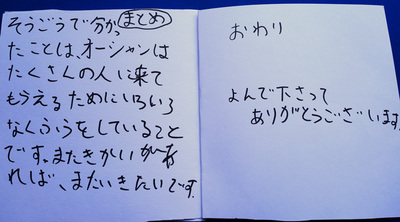 まとめ
そうごうで分かっ
たことは、オーシャンは
たくさんの人に来て
もらえるためにいろいろ
なくふうをしていること
です。またきかいがあ
れば、またいきたいです。
おわり
よんで下さって
ありがとうございます。